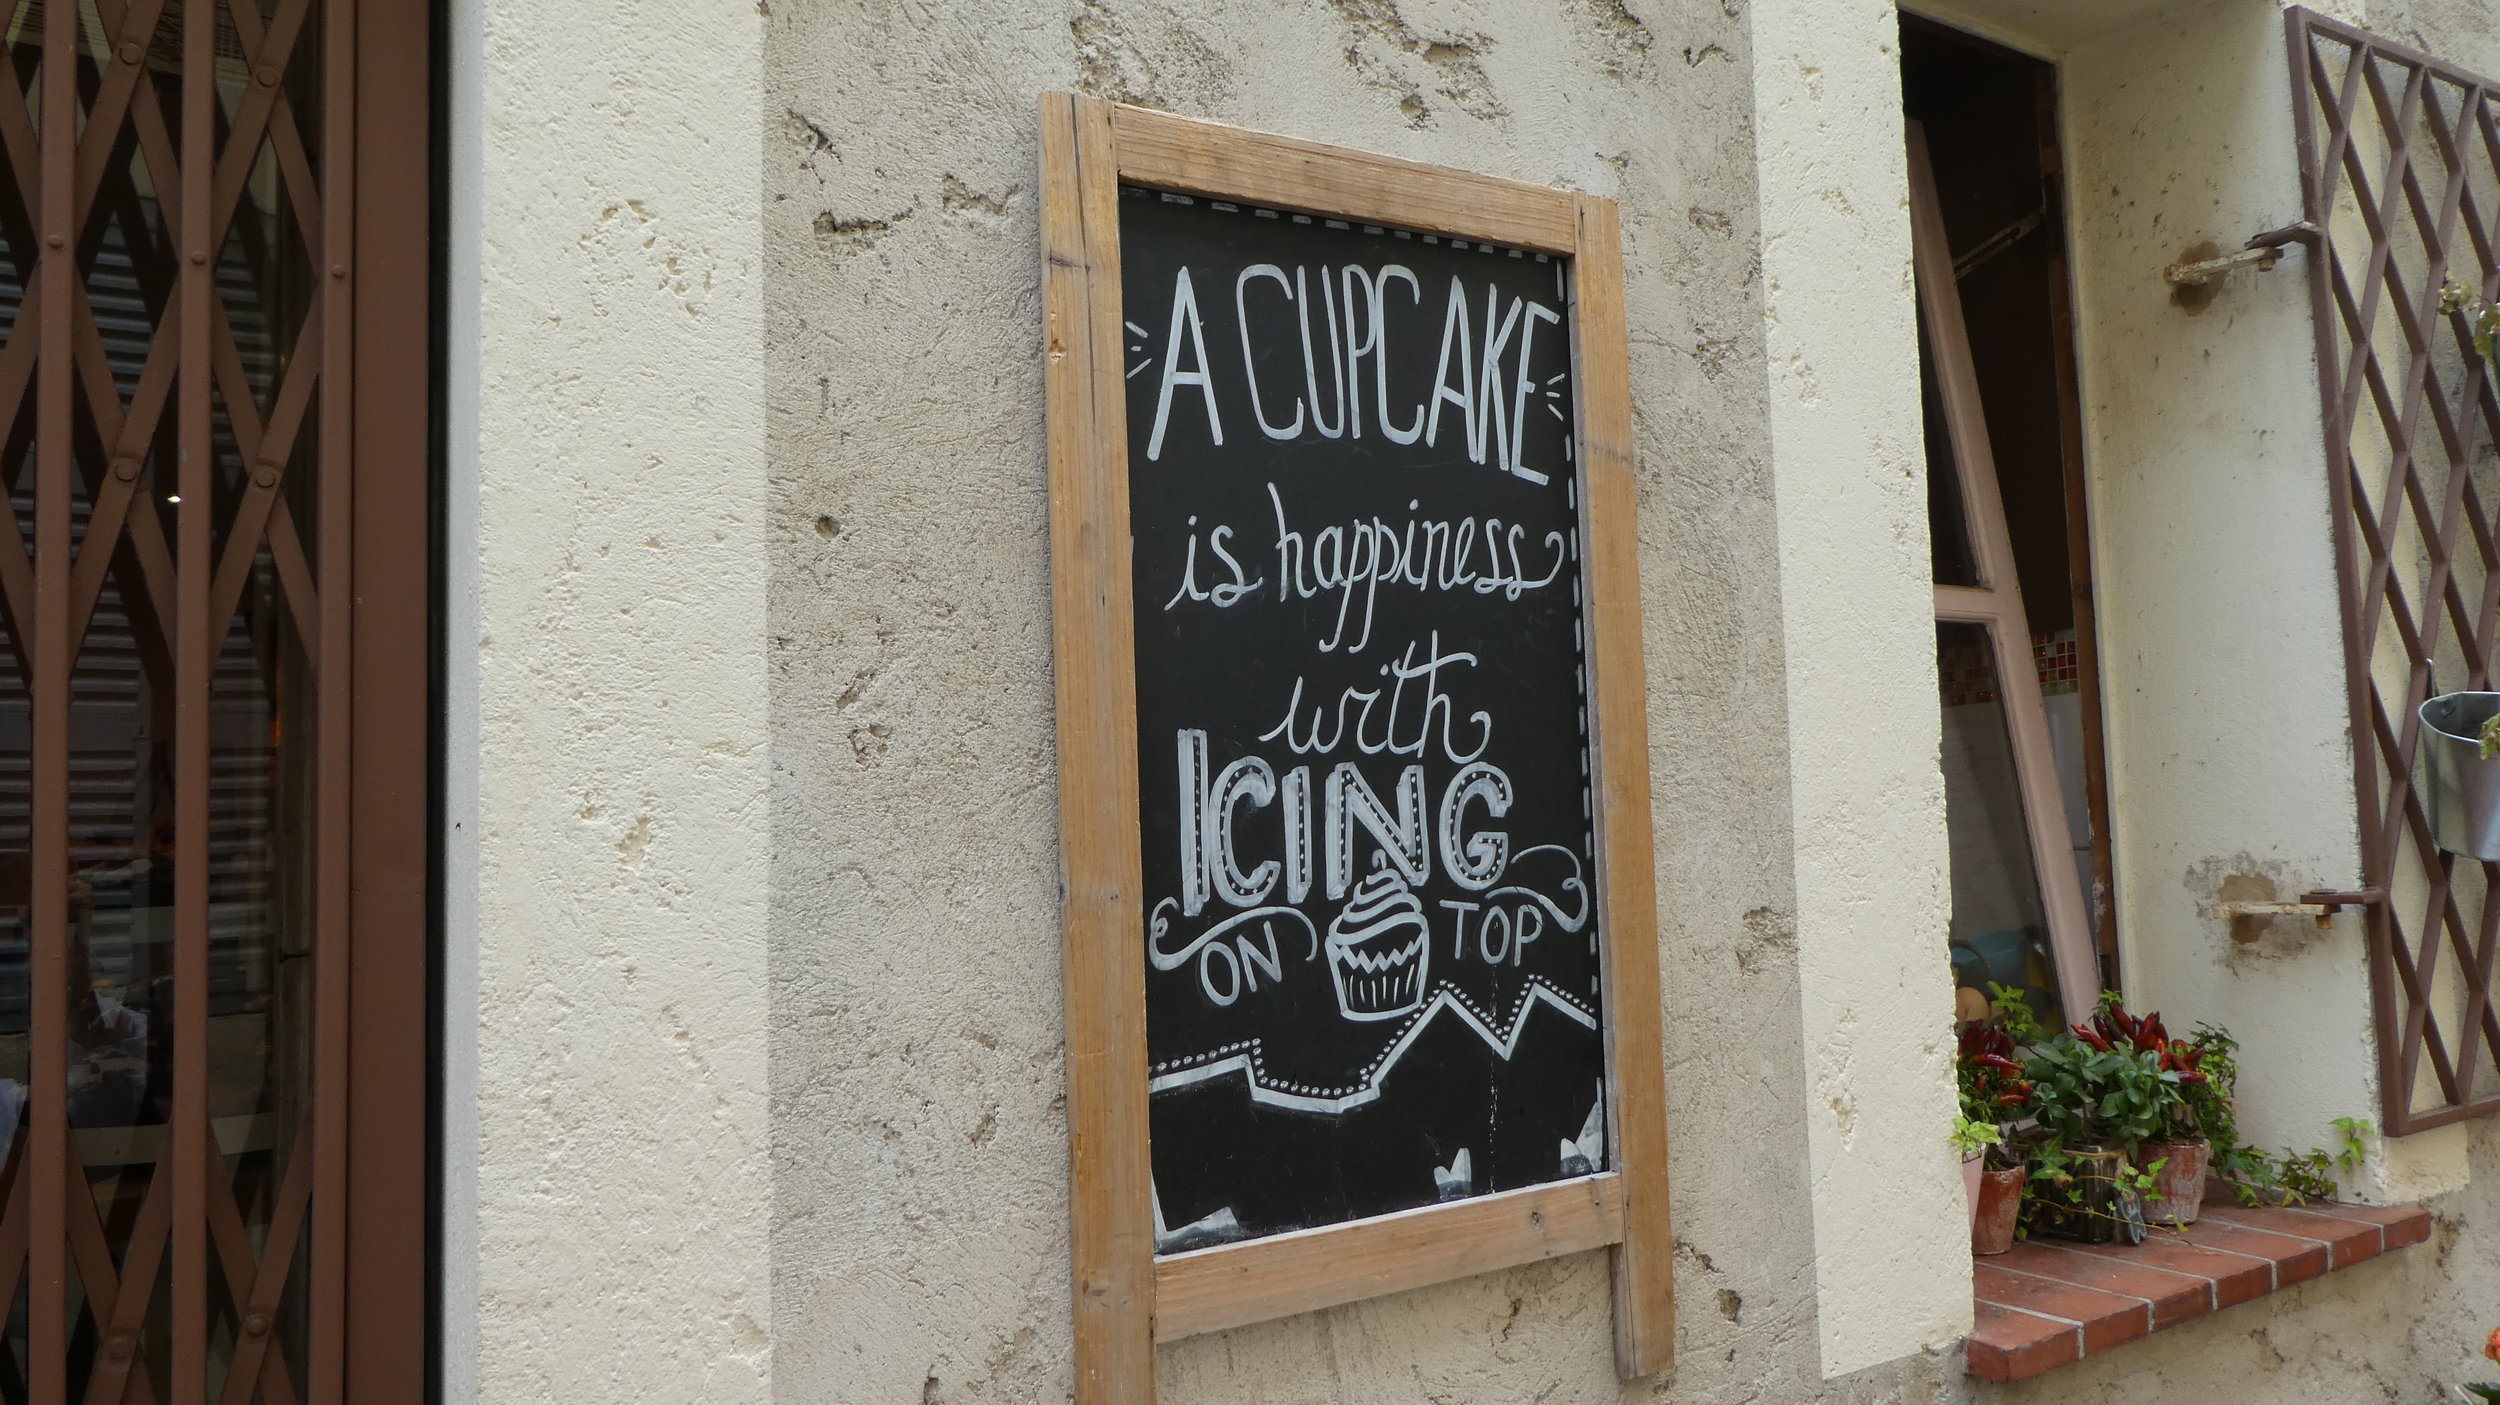 A CUPCAKE
is happiness
with
ICING
ON TOP